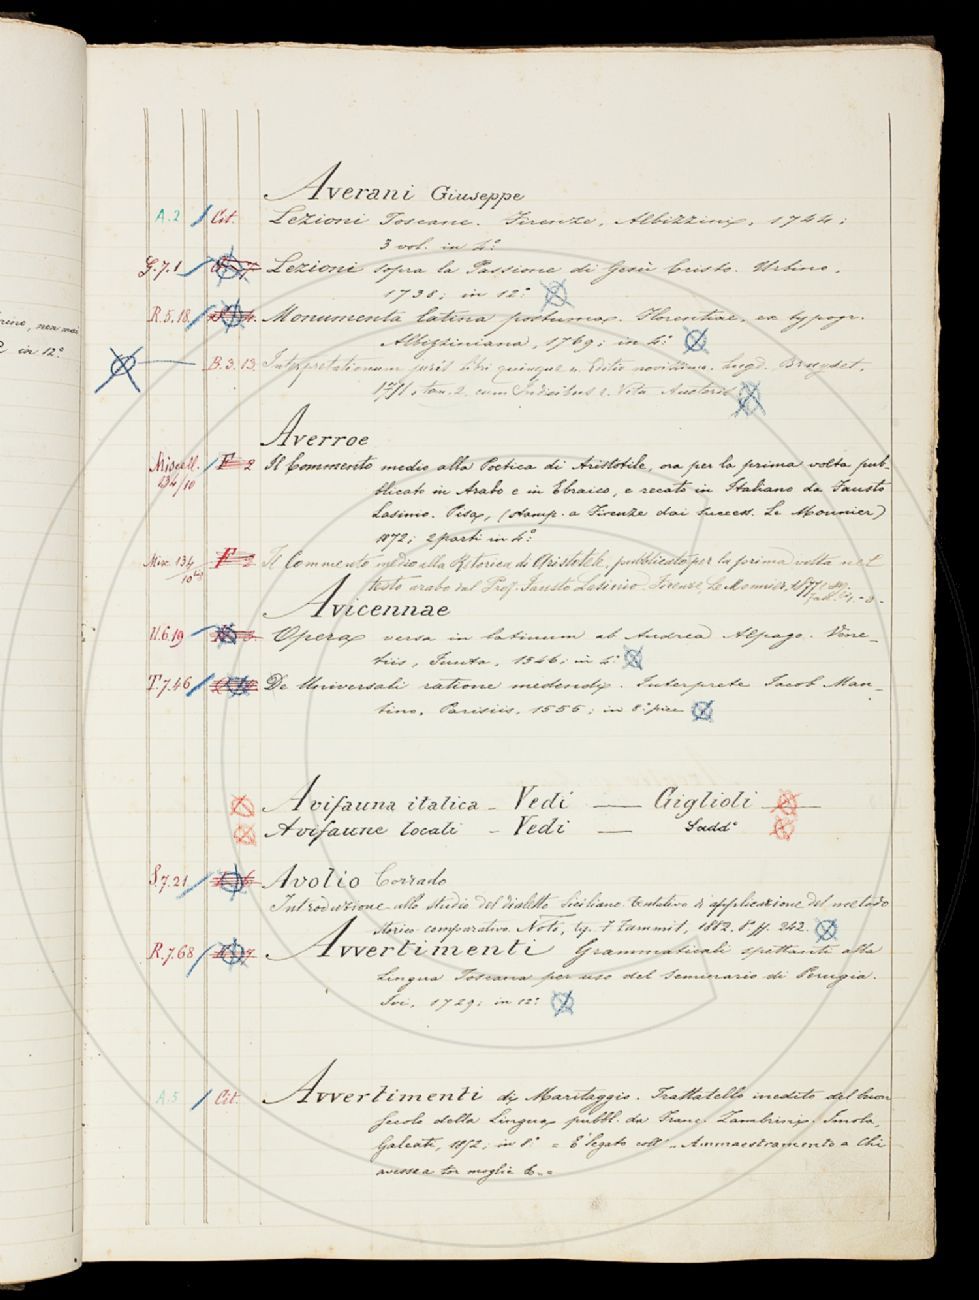 Averani Giuseppe
A.2 Cit. Lezioni Toscane. Firenze, Albizzini, 1744;
3 vol. in 4°
G.7.1 Lezioni sopra la Passione di Gesù Cristo. Urbino,
1738; in 12°
R.5.18 Monumenta latina postuma. Florentiae, ex typogr.
Albizziniana, 1769; in 4°
B.3.13. Interpretationum juris libri quinque. Editio novissima. Lugd. Bruyset,
tom. 2. cum Indicibus e Vita Auctoris
Averroe
Miscell. 134/10 F 2 Il Commento medio alla Poetica di Aristotile, ora per la prima volta pub-
blicato in Arabo e in Ebraico, e recato in Italiano da Fausto
Lasinio. Pisa, (stamp. a Firenze dai Success. Le Monnier)
1872; 2 parti in 4°
Misc. 134 F 2 Il Commento medio alla Retorica di Aristotele, pubblicato per la prima volta nel
testo arabo dal Prof. Fausto Lasinio. Firenze, Le Monnier,
Avicennae
U.6.19 Opera versa in latinum ab Andrea Alpago. Vene-
tiis, Junta, 1546; in 4°
T.7.46 De Universali ratione medendi. Interprete Jacob Man-
tino, Parisiis, 1555; in 8° picc
Avifauna italica - Vedi — Giglioli —
Avifaune locali - Vedi — Sudd°
S.7.21 Avolio Corrado
Introduzione allo studio del dialetto Siciliano tentativo d'applicazione del metodo
storico comparativo. Noto, tip. F. Zammit, 1882. 8° pp. 242.
R.7.68 Avvertimenti Grammaticali spettanti alla
Lingua Toscana per uso del Seminario di Perugia.
Ivi, 1729; in 12°
A.5 Cit. Avvertimenti di Maritaggio. Trattatello inedito del buon
secolo della Lingua pubbl. da Franc. Zambrini. Imola,
Galeati, in 8° = È legato coll' "Ammaestramento a chi
avesse a tor moglie
nen mai
in 12°